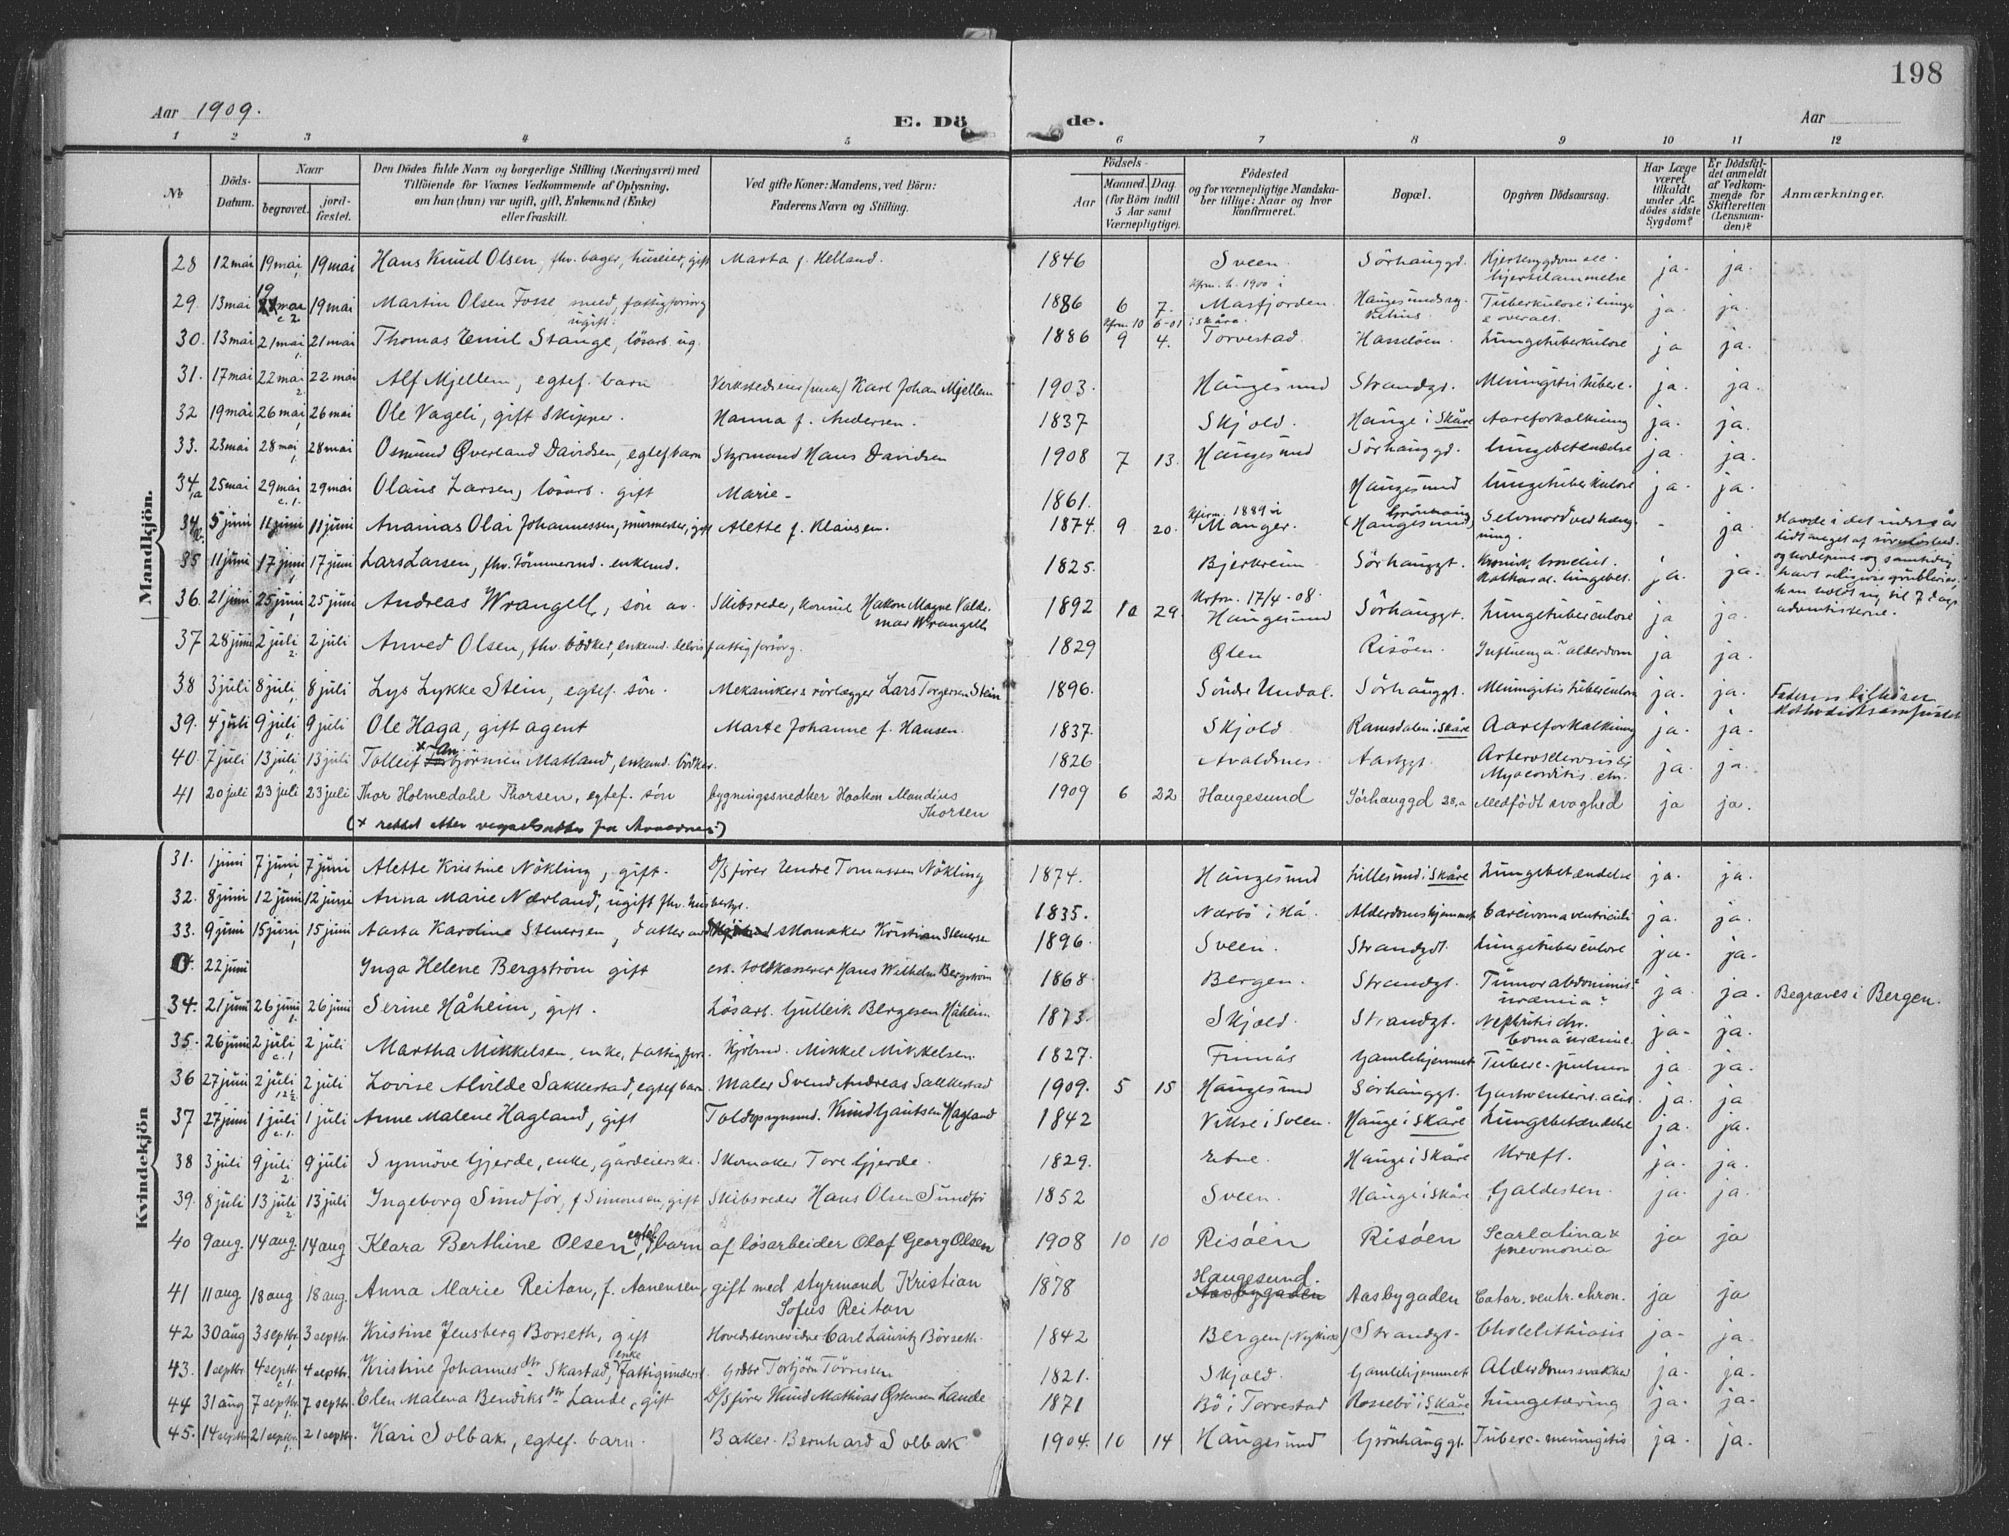 198
Aar 1909.
E. Dö de.
Aar
1 2 3 4 5 6 7 8 9 10 11 12
No
Döds-Datum.
Naar
begravet.
jordfæstet.
Den Dödes fulde Navn og borgerlige Stilling (Næringsvei) med
Tilföiende for Voxnes Vedkommende af Oplysning,
om han (hun) var ugift, gift, Enkemand (Enke)
eller fraskilt.
Ved gifte Koner: Mandens, ved Börn:
Faderens Navn og Stilling.
Födsels-
Aar
Maaned. Dag.
(for Börn indtil
5 Aar samt
Værnepligtige).
Födested
og for værnepligtige Mandskaber tillige: Naar og hvor
konfirmeret.
Bopæl.
Opgiven Dödsaarsag.
Har Læge været tilkaldt under Afdödes sidste Sygdom?
Er Dödsfaldet anmeldt af Vedkommende for Skifteretten (Lensmanden)?
Anmærkninger.
Mandkjön.
28 12 mai 19 mai 19 mai Hans Knud Olsen, fhv. bager, huseier, gift Marta f. Helland. 1846 Sveen. Sörhauggd. Hjertesygdom hjertelammelse ja. ja.
29. 13 mai 19 mai 19 mai Martin Olsen Fosse fattigforsörg ugift. 1886 6 7. Kfrm. 1900 i Masfjorden Haugesunds sygehus Tuberkulose i lunge & overalt. ja. ja.
30. 13 mai 21 mai 21 mai Thomas Emil Stange, lösarb. ug. 1886 9 4. i Skåre Torvestad. Hasselöen. Lungetuberkulose ja ja.
31. 17 mai 22 mai 22 mai Alf Mjellem, egtef. barn Verkstedseier (mek) Karl Johan Mjellem 1903. Haugesund Strandgt. Meningitis tuberc. ja. ja.
32 19 mai 26 mai 26 mai Ole Vageli, gift Skipper. Hanna f. Andersen. 1837 Skjold. Hauge i Skåre Aareforkalkning ja. ja.
33. 23 mai 28 mai 28 mai Osmund Øverland Davidsen, egtef barn Styrmand Hans Davidsen 1908 7 13. Haugesund Sörhauggd. Lungebetændelse ja. ja.
34a 25 mai 29 mai 29 mai Olaus Larsen, lösarb. gift Marie - 1861. Haugesund Lungetuberkulose ja. ja.
34b. 5 juni 11 juni 11 juni Ananias Olai Johannessen, murmester, gift Alette f. Klausen. 1874. 9 20. Kfirm. 1889 i Manger. Grönhaug (Haugesund) Selvmord ved hængning. - ja.
Havde i det indre år
lidt meget af sövnlöshed
og hodepine og samtidig
havt religiøse grublerier,
han holdt sig til 7 dags
adventisterne.
35 11 juni 17 juni 17 juni Lars Larsen, fhv. Tömmermd. enkemd. 1825. Bjerkreim Sörhauggt. Kronisk bronchit. Katharal. lungebet. ja. ja.
36. 21 juni 25 juni 25 juni Andreas Wrangell, sön av Skibsreder, konsul Hakon Magne Valdemar Wrangell 1892 10 29. Konfrm. 17/4-08. Haugesund Sörhauggt. Lungetuberculose ja ja.
37 28 juni 2 juli 2 juli Anved Olsen, fhv. bödker, enkemd. delvis fattigforsörg. 1829 Ølen Risöen. Influenza. alderdom ja ja.
38 3 juli 8 juli 8 juli Lys Lykke Stein, egtef. sön. Mekaniker & rörlægger Lars Torgersen Stein 1896. Söndre Undal. Sörhauggt. Meningitis tuberculosa ja. ja. Faderen tilhörer Methodistsamfundet
39. 4 juli 9 juli 9 juli Ole Haga, gift agent Marte Johanne f. Hansen. 1837. Skjold Ramsdalen i Skåre Aareforkalkning ja. ja.
40. 7 juli 13 juli 13 juli Tolleif Anbjörnsen Matland, enkemd. bödker. 1826 Avaldsnes Aasbygt. Arteriosclerosis Myocarditis chr. ja. ja.
41 20 juli 23 juli 23 juli Thor Holmedahl Thorsen, egtef. sön bygningssnedker Haakon Mandius Thorsen 1909 6 22 Haugesund Sörhauggd 28,a Medfödt svaghed ja ja.
(x rettet etter
Kvindekjön
31. 1 juni 7 juni 7 juni Alette Kristine Nökling, gift. D/S förer Undre Tomassen Nökling 1874. Haugesund Lillesund i Skåre Lungebetændelse ja. ja.
32. 8 juni 12 juni 12 juni Anna Marie Nærland, ugift fhv. husbestyr. 1835. Nærbö i Hå. Alderdomshjemmet Carcinoma ventriculi ja. ja.
33. 9 juni 15 juni 15 juni Aasta Karoline Stenersen, datter av skomaker Kristian Stenersen 1896. Sveen. Strandgt. Lungetuberculose ja. ja.
0. 22 juni Inga Helene Bergström gift toldkasserer Hans Wilhelm Bergström 1868. Bergen. Strandgt. Tumor abdominis "uræmia" ja ja. Begraves i Bergen.
34. 21 juni 26 juni 26 juni Serine Håheim, gift. Lösarb. Gulleik Bergesen Håheim. 1873. Skjold. Strandgt. Nephritis chr. Coma uræmic. ja. ja.
35. 26 juni 2 juli 2 juli Martha Mikkelsen, enke, fattigfors. Kjöbmd. Mikkel Mikkelsen. 1827. Finnås Gamlehjemmet Tuberc. pulmon ja. ja.
36 27 juni 2 juli 2 juli Lovise Alvilde Sakkestad, egtef barn. Maler Svend Andreas Sakkestad 1909. 5 15 Haugesund Sörhauggt. Gastroenterit. acut. ja. ja
37 27 juni 1 juli 1 juli Anne Malene Hagland, gift Toldopsynsmd. Knud Gautsen Hagland 1842 Vikse i Sveen. Hauge i Skåre Lungebetændelse ja. ja.
38 3 juli 9 juli 9 juli Synnöve Gjerde, enke, gårdeierske. Skomaker Tore Gjerde. 1829. Etne. Hauge i Skåre Kræft. ja. ja.
39. 8 juli 13 juli 13 juli Ingeborg Sundför, f Simonsen, gift Skibsreder Hans Olsen Sundför 1852 Sveen. Hauge i Skåre Galdesten. ja. ja.
40 9 aug. 14 aug. 14 aug Klara Berthine Olsen, egtef. barn af lösarbeider Olaf Georg Olsen 1908 10 10 Risöen Risöen Scarlatina & pneumonia ja ja
41 11 aug 18 aug 18 aug. Anna Marie Reitan, f. Aanensen, gift med styrmand Kristian Sofus Reitan 1878 Haugesund. Aasbygaden Aasbygaden Catar. ventr. chron. ja ja
42 30 aug 3 septbr. 3 septbr. Kristine Jensberg Börseth, gift Hovedstevnevidne Carl Lauritz Börseth. 1842 Bergen (Nykirke) Strandgt. Cholelithiasis ja. ja.
43. 1 septbr 4 septbr 4 septbr Kristine Johannesdtr. Skarstad, enke Fattigunderst. Grdbr Torbjörn Törrisen 1821. Skjold. Gamlehjemmet Alderdomssvakhet ja. ja.
44 31 aug 7 septbr. 7 septbr. Elen Malena Bendiksdtr. Lande, gift D/S förer Knud Mathias Østensen Lande 1871 Bö i Torvestad Rossebö i Skåre Lungetæring ja. ja.
45. 14 septbr 21 septbr. 21 septbr. Kari Solbak, egtef. barn. Baker Bernhard Solbak 1904. 10 14 Haugesund Grönhauggt. Tuberc. meningitis ja. ja.